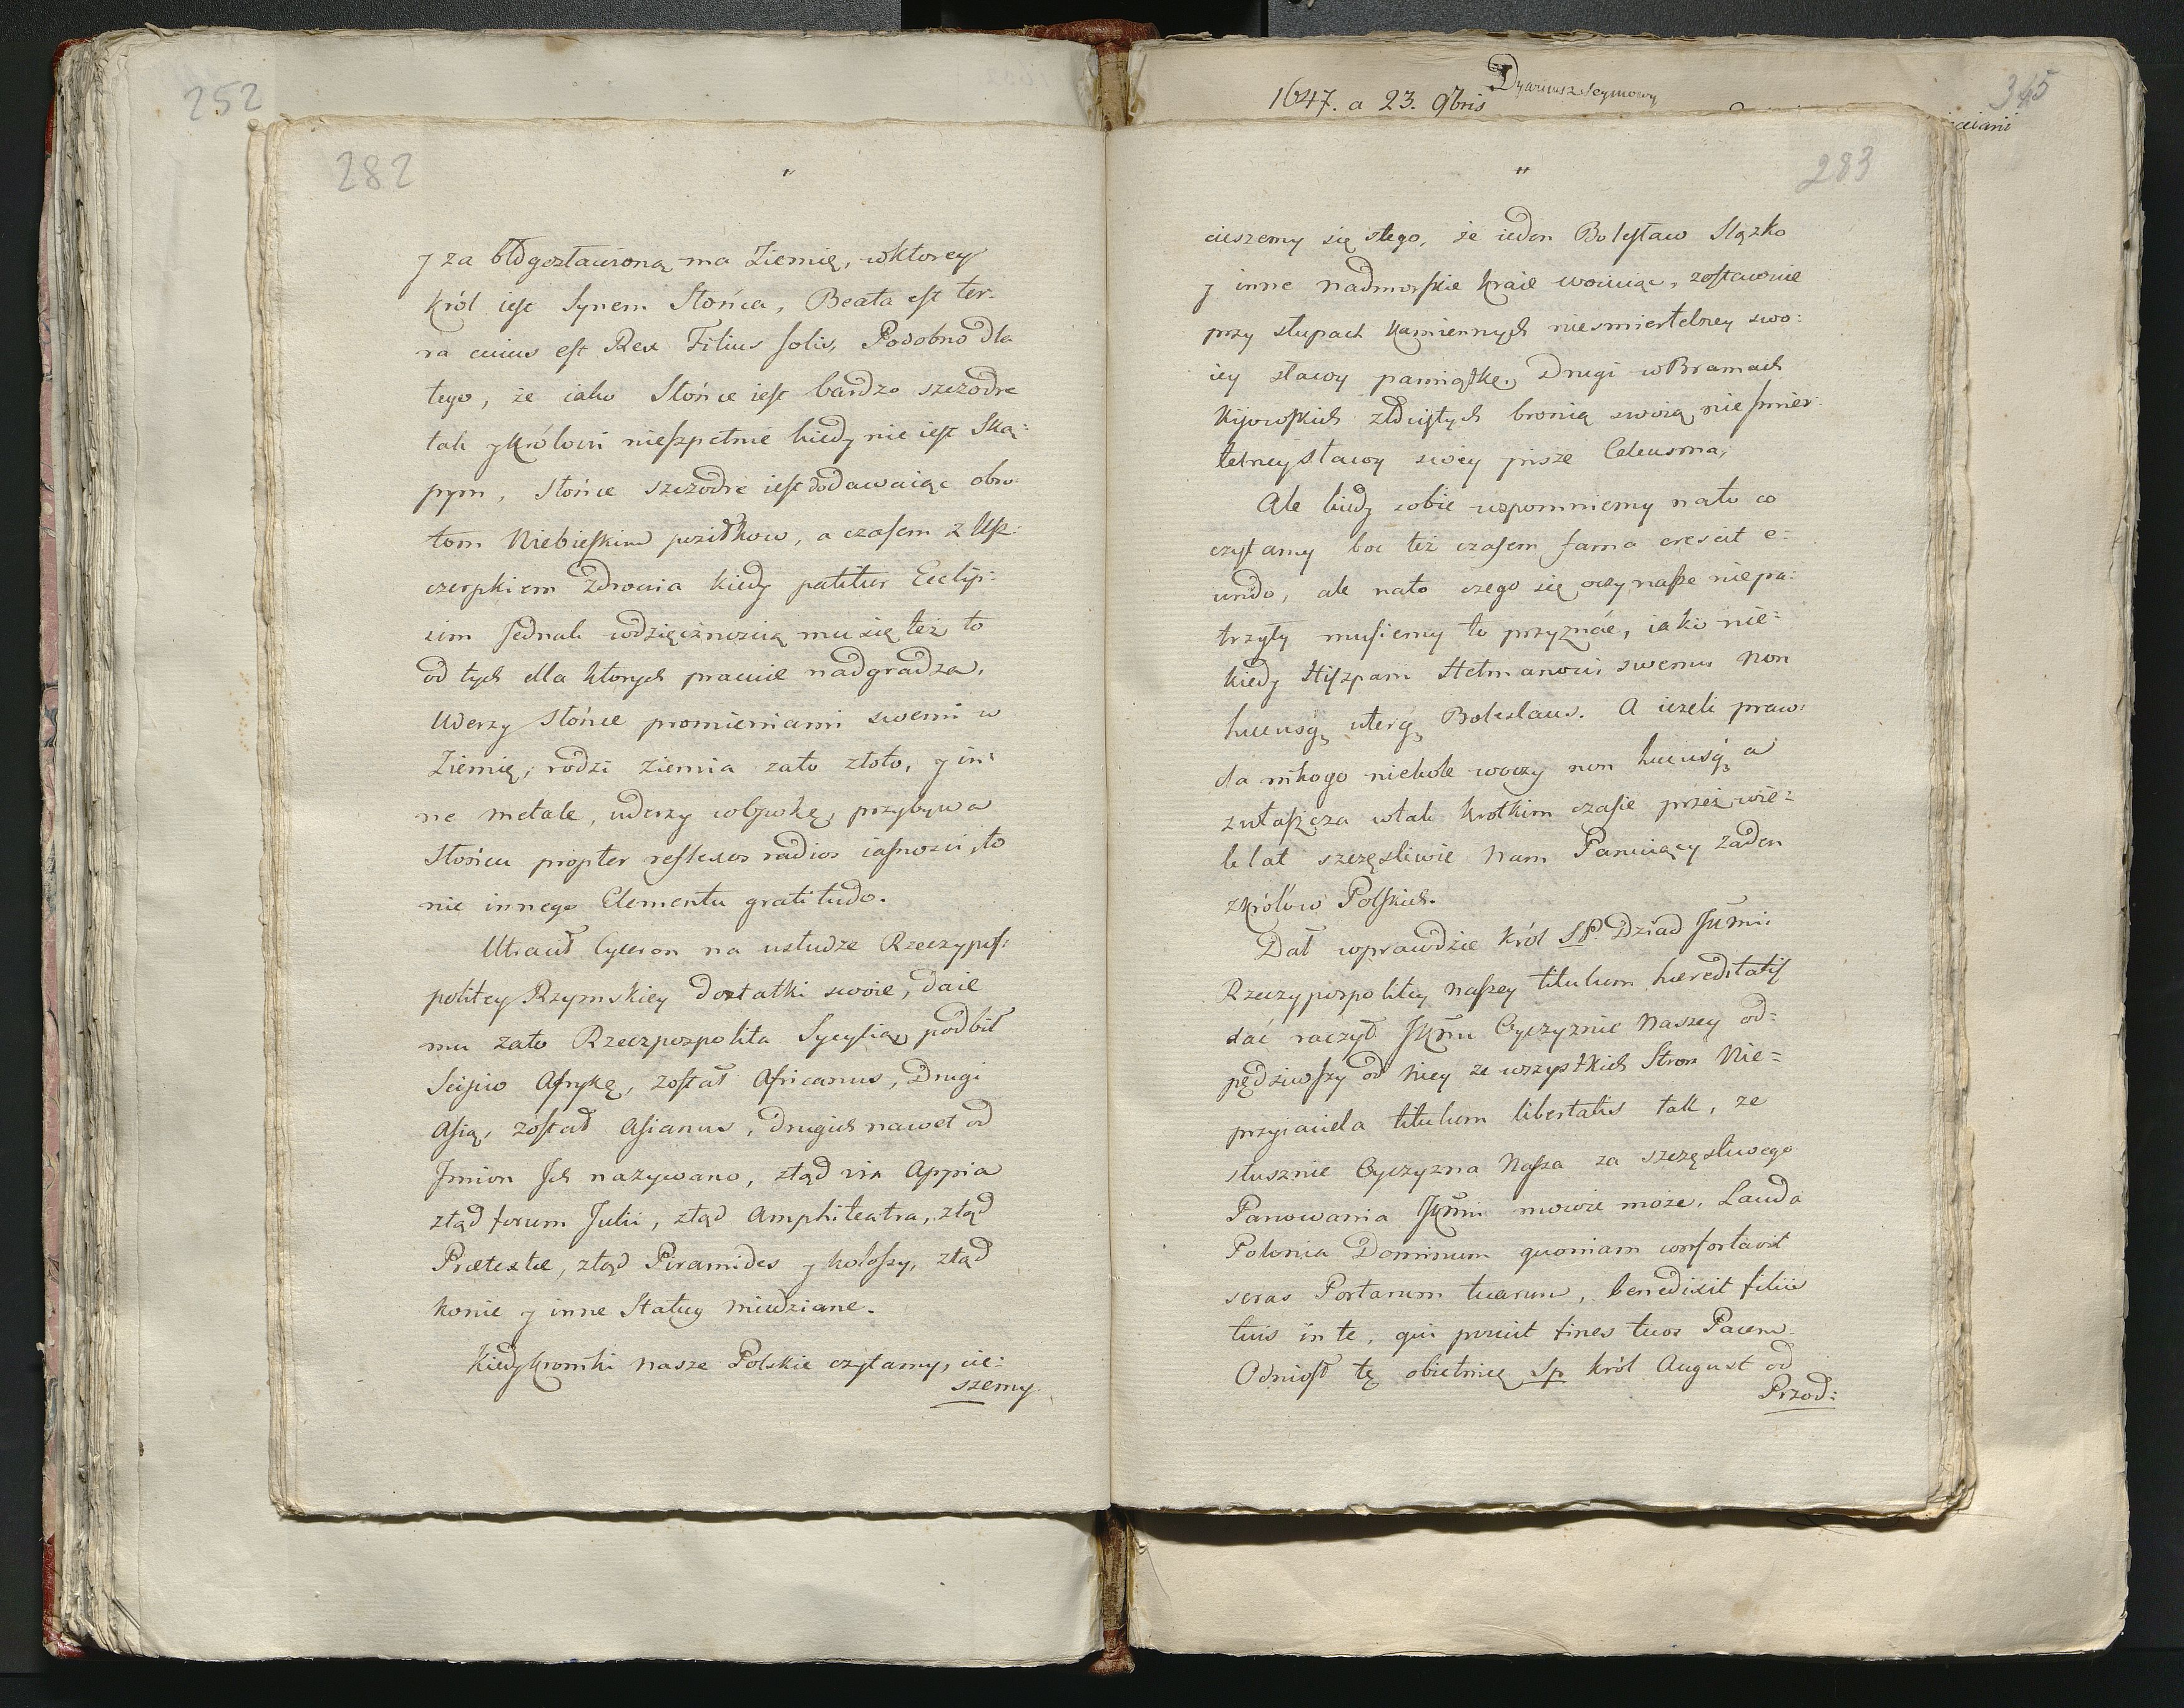 252
282
"
y za błogosławioną ma Ziemię, wktorey
Król iest Synem Słońca, Beata est ter-
ra cuius est Rex Filius solis, Podobno dla
tego, że iako Słońce iest bardzo szczodre
tak y Królowi nieszpetnie kiedy nie iest Ską:
pym, Słońce szczodre iest dodawaiąc obro-
tom Niebieskim posiłkow, a czasem z Usz-
czerpkiem Zdrowia kiedy patitur Eclip:
sim Jednak wdzięcznością mu się też to
od tych dla ktorych pracuie nadgradza,
Uderzy Słońce promieniami swemi w
Ziemię, rodzi ziemia zato złoto, y in:
ne metale, uderzy w opokę, przybywa
Słońcu propter reflexos radios iasnosci, to
nie innego Elementu gratitudo.
Utracił Cyceron na usłudze Rzeczyposp:
politey Rzymskiey dostatki swoie, daie
mu zato Rzeczpospolita Sycylią, podbił
Scipio Afrykę, został Africanus, Drugi
Asią, został Asianus, drugich nawet od
Jmion Jch nazywano, ztąd via Appia
ztąd forum Julii, ztąd Amphiteatra, ztąd
Prætextæ, ztąd Piramides y kolossy, ztąd
konie y inne Statuy miedziane.
Kiedy kroniki nasze Polskie czytamy, cie:
szemy.
1647. a 23. 9bris
Dyariusz Seymowy
345
283
"
cieszemy się ztego, że ieden Bolesław Slązko
y inne nadmorskie kraie woiuiąc, zostawuie
przy słupach Kamiennych niesmiertelney swo:
iey sławy pamiątkę, Drugi w Bramach
Kijowskich złocistych bronią swoią niesmier-
telney sławy swoiey pisze Celeusma,
Ale kiedy sobie wspomniemy nato co
czytamy boc też czasem fama crescit e-
undo, ale nato czego się oczy nasze niepa:
trzyły musiemy to przyznać, iako nie:
kiedy Hiszpani Hetmanowi swemu non
hucusq; uterq; Boleslaus. A ieżeli praw:
da nikogo niekole woczy non hucusq; a
zwłaszcza wtak krotkim czasie przez wie:
le lat szczęsliwie nam Panuiący żaden
zkrólow Polskich.
Dał wprawdzie król SP. Dziad JKMci
Rzeczypospolitey naszey titulum hæreditatis
dać raczył JKMci Oyczyznie Naszey od:
pędziwszy od niey ze wszystkich Stron Nie=
przyiaciela titulum libertatis tak, ze
słusznie Oyczyzna Nasza za szczęsliwego
Panowania JKMci mowic może, Lauda
Polonia Dominum quoniam confortavit
seras Portarum tuarum, benedixit filiis
tuis in te, qui posuit fines tuos Pacem.
Odniosł tę obietnicę Sp król August od
Przod: